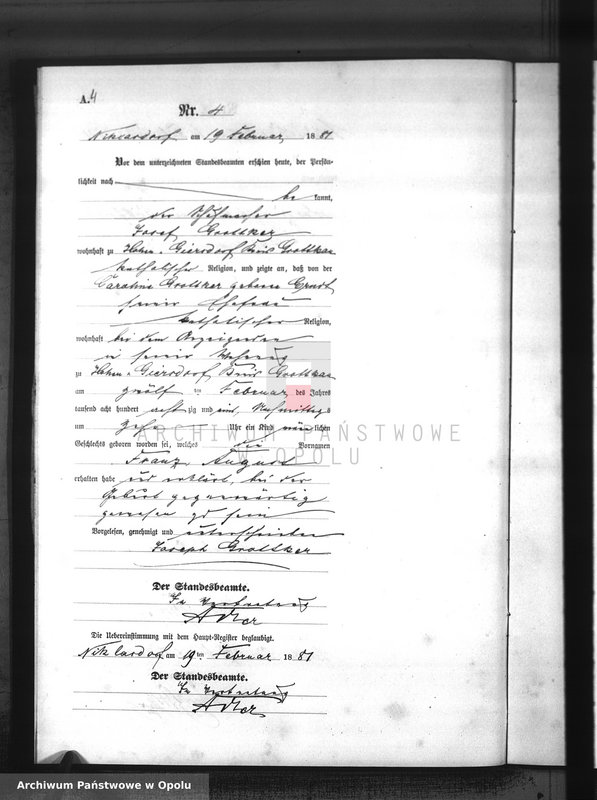 A.4
Nr. 4
Niklasdorf am 19 Februar 1881
Vor dem unterzeichneten Standesbeamten erschien heute, der Persön-
lichkeit nach
be kannt,
der
Josef Grottker
wohnhaft zu Hohen-Giersdorf Kreis Grottkau
katholischer Religion, und zeigte an, daß von der
Carolina Grottker geborene
seiner Ehefrau
katholischer Religion,
wohnhaft bei dem Anzeigenden
in seiner Wohnung
zu Hohen-Giersdorf Kreis Grottkau
am zwölf ten Februar des Jahres
tausend acht hundert acht zig und eins, Nachmittags
um zehn Uhr ein Kind männ lichen
Geschlechts geboren worden sei, welches die Vornamen
Franz August
erhalten habe und erklärt, bei der
Geburt gegenwärtig
gewesen zu sein
Vorgelesen, genehmigt und unterschrieben
Joseph Grottker
Der Standesbeamte.
In Vertretung
Adler
Die Uebereinstimmung mit dem Haupt-Register beglaubigt.
Niklasdorf am 19 ten Februar 1881
Der Standesbeamte.
In Vertretung
Adler
ARCHIWUM PAŃSTWOWE
W OPOLU
Archiwum Państwowe w Opolu